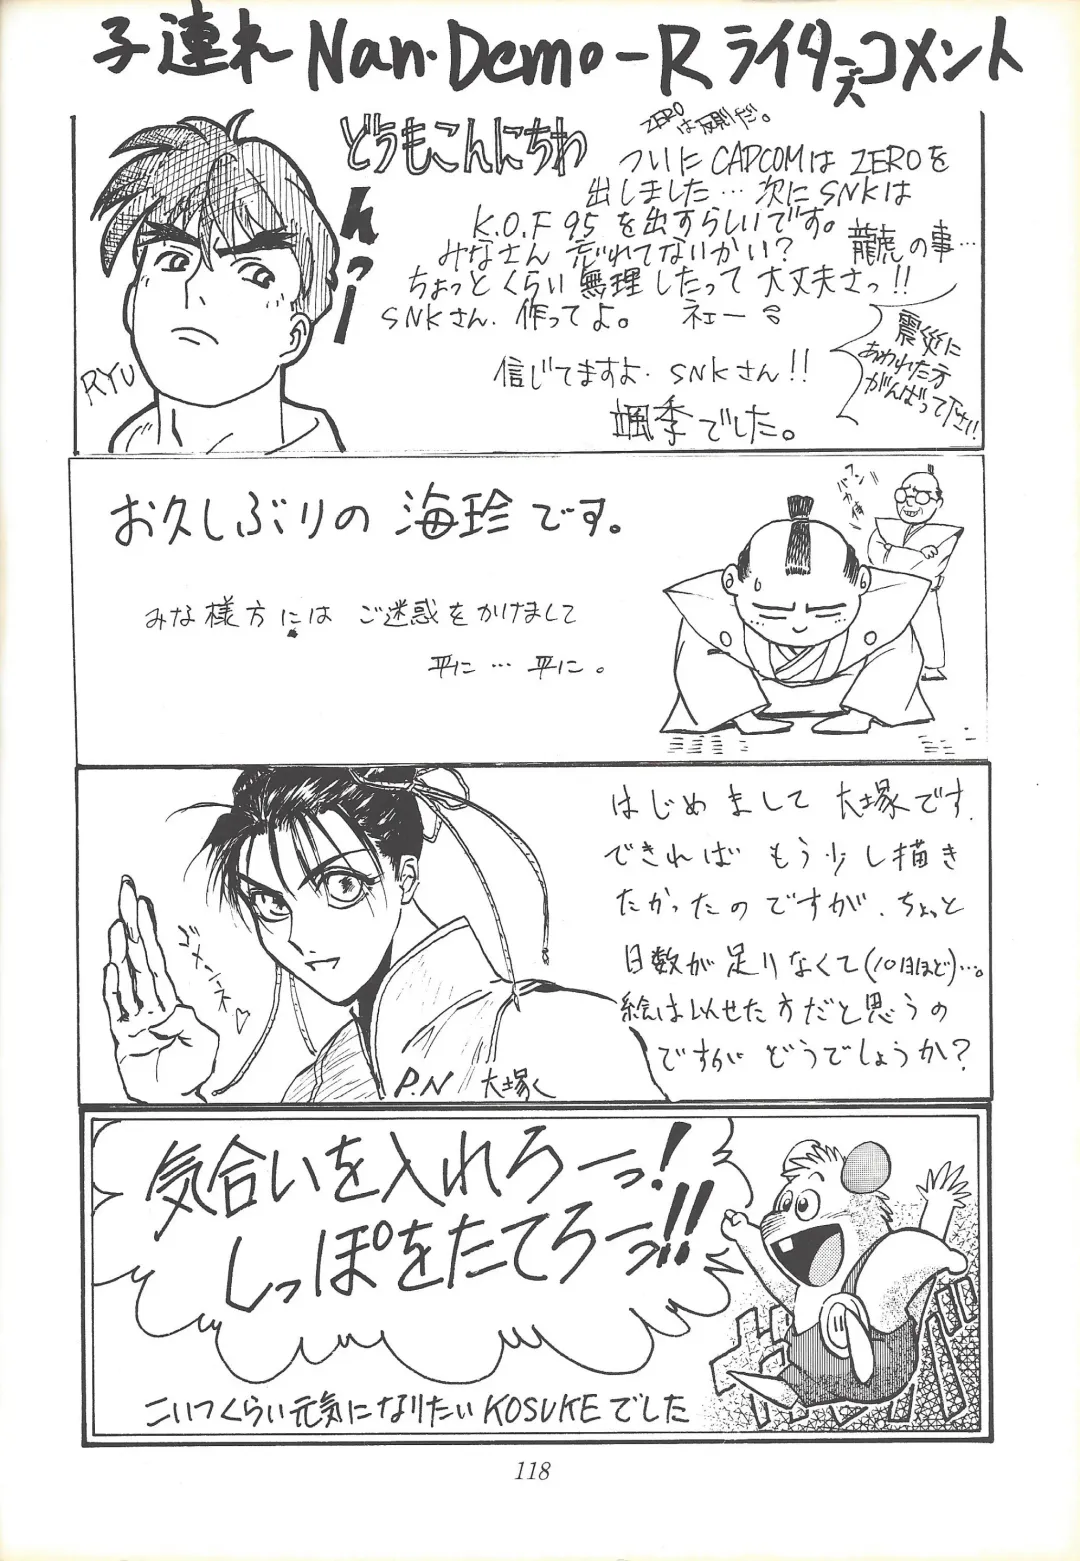 子連れ Nan・Demo-R ライターズコメント
どうもこんにちわ
んっー
ZEROは反則だ。
ついに CAPCOMは ZEROを
出しました… 次に SNKは
K.O.F 95 を出すらしいです。
みなさん 忘れてないかい? 龍虎の事…
ちょっとくらい無理したって大丈夫さっ!!
SNKさん. 作ってよ。 ネェー
震災に
あわれた方
がんばって下さい!
信じてますよ. SNKさん!!
颯季でした。
RYU
お久しぶりの 海珍です。
みな様方には ご迷惑をかけまして
平に … 平に 。
はじめまして 大塚です.
できれば もう少し描き
たかったのですが、ちょっと
日数が足りなくて(10日ほど)…。
絵は似せた方だと思うの
ですが どうでしょうか?
ゴメーネ♡
P.N 大塚く
気合いを入れろーっ!
しっぽをたてろーっ!!
こいつくらい元気になりたい KOSUKEでした
118